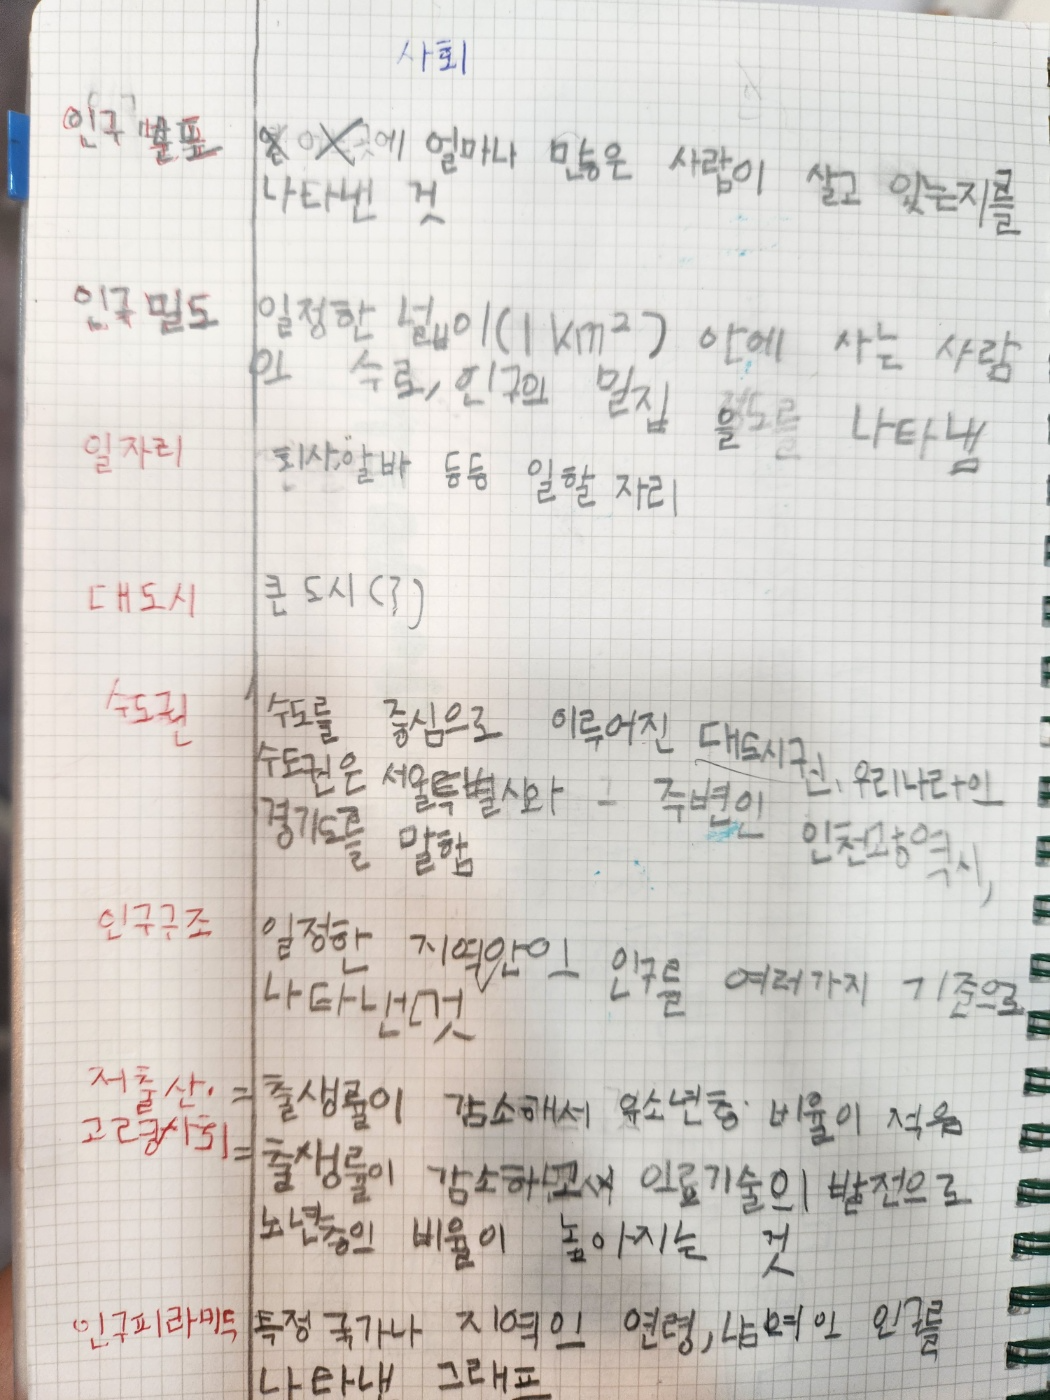 사회
인구 분포 어느 곳에 얼마나 많은 사람이 살고 있는지를
나타낸 것
인구 밀도 일정한 넓이(1km²) 안에 사는 사람
의 수로, 인구의 밀집 정도를 나타냄
일자리 회사,알바 등등 일할 자리
대도시 큰 도시(?)
수도권 수도를 중심으로 이루어진 대도시권, 우리나라의
수도권은 서울특별시와 그 주변인 인천광역시,
경기도를 말함
인구구조 일정한 지역안의 인구를 여러가지 기준으로
나타낸것
저출산· = 출생률이 감소해서 유소년층 비율이 적음
고령사회 = 출생률이 감소하면서 의료기술의 발전으로
노년층의 비율이 높아지는 것
인구피라미드 특정 국가나 지역의 연령,남여의 인구를
나타낸 그래프